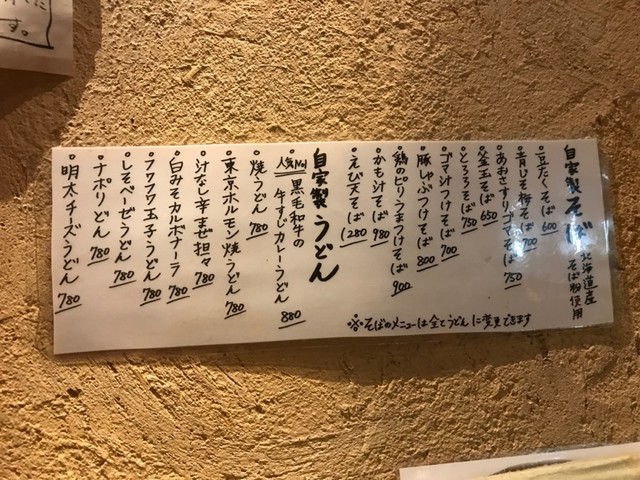 自家製そば 北海道産そば粉使用
豆たくそば 600
青じそ梅そば 700
あおさすりゴマそば 750
釜玉そば 650
とろろそば 750
ゴマ汁つけそば 700
豚しゃぶつけそば 800
鶏のピリうまつけそば 900
かも汁そば 980
えび天そば 1280
自家製うどん
人気No1 黒毛和牛の
牛すじカレーうどん 880
焼うどん 780
東京ホルモン焼うどん 780
汁なし辛まぜ担々 780
白みそカルボナーラ 780
フワフワ玉子うどん 780
しそベーゼうどん 780
ナポリどん 780
明太チーズうどん 780
※そばのメニューは全てうどんに変更できます
す。